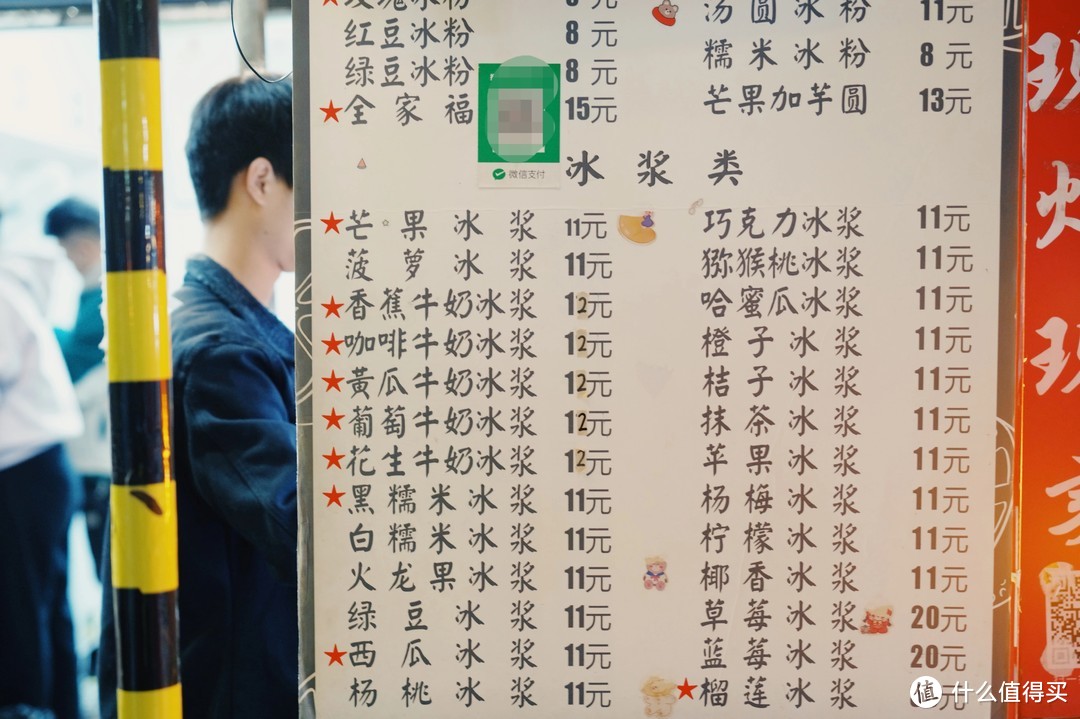 冰粉 8元
红豆冰粉 8元
绿豆冰粉 8元
★全家福 15元
汤圆冰粉 11元
糯米冰粉 8元
芒果加芋圆 13元
微信支付
冰浆类
★芒果冰浆 11元
菠萝冰浆 11元
★香蕉牛奶冰浆 12元
★咖啡牛奶冰浆 12元
★黃瓜牛奶冰浆 12元
★葡萄牛奶冰浆 12元
★花生牛奶冰浆 12元
★黑糯米冰浆 11元
白糯米冰浆 11元
火龙果冰浆 11元
绿豆冰浆 11元
★西瓜冰浆 11元
杨桃冰浆 11元
巧克力冰浆 11元
猕猴桃冰浆 11元
哈蜜瓜冰浆 11元
橙子冰浆 11元
桔子冰浆 11元
抹茶冰浆 11元
苹果冰浆 11元
杨梅冰浆 11元
柠檬冰浆 11元
椰香冰浆 11元
草莓冰浆 20元
蓝莓冰浆 20元
★榴莲冰浆 元
现
炒
现
值 什么值得买